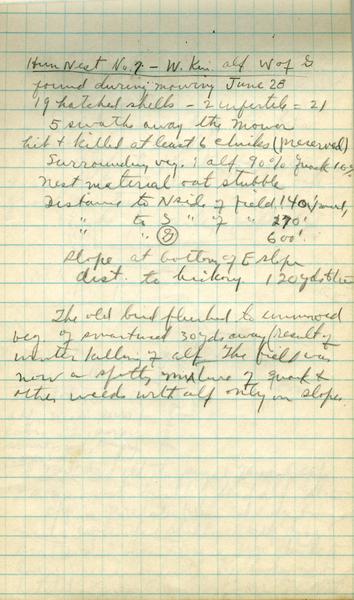 Hun Nest No. 7 - W. Kin. alf W of G
found during mowing June 28
19 hatched shells - 2 infertile = 21
5 swaths away the mower
hit & killed at least 6 chicks (preserved)
Surrounding veg: alf 90% Quack 10%
Nest material oat stubble
Distance to N side of field 140
" to S " " " 270'
" " G 600'
Slope at bottom of E slope
dist. to hickory 120 yds
The old bird flushed to unmowed
veg. of smartweed 30 yds away (result of
winter killing of alf. The field was
now a spotty mixture of quack &
other weeds with alf only on slopes.